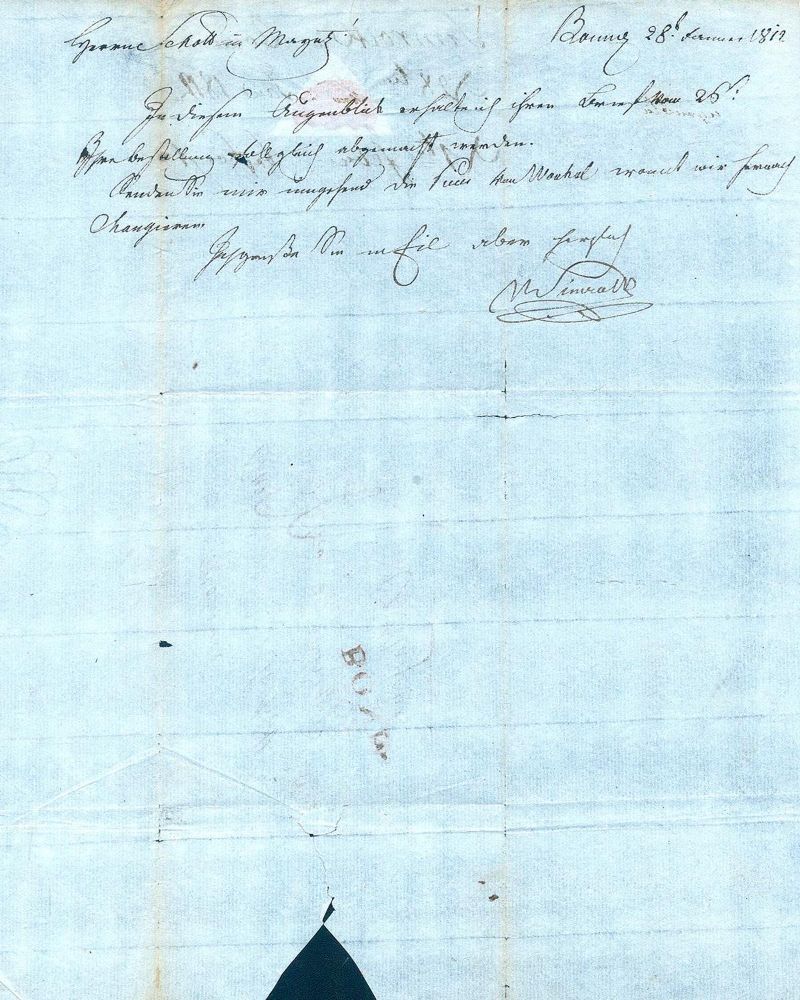 Herrn Schott in Maynz! Bonn 28t Jenner 1812
In diesem Augenblick erhalte ich ihren Brief vom 25t
Ihre bestellung soll gleich abgemacht werden.
Senden Sie mir umgehend die wir hernach
changieren.
Ich grüße Sie in Eil aber herzlich
NSimrock
BONN